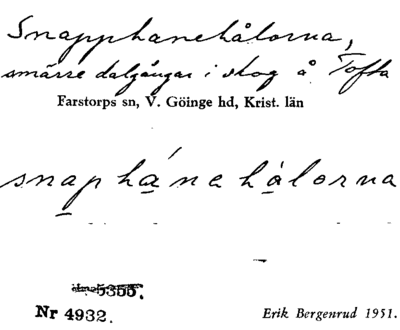 Snapphanehålorna,
smärre dalgångar i skog å Tofta
Farstorps sn, V. Göinge hd, Krist. län
snaphánehålorna
5355.
Nr 4932.
Erik Bergenrud 1951.